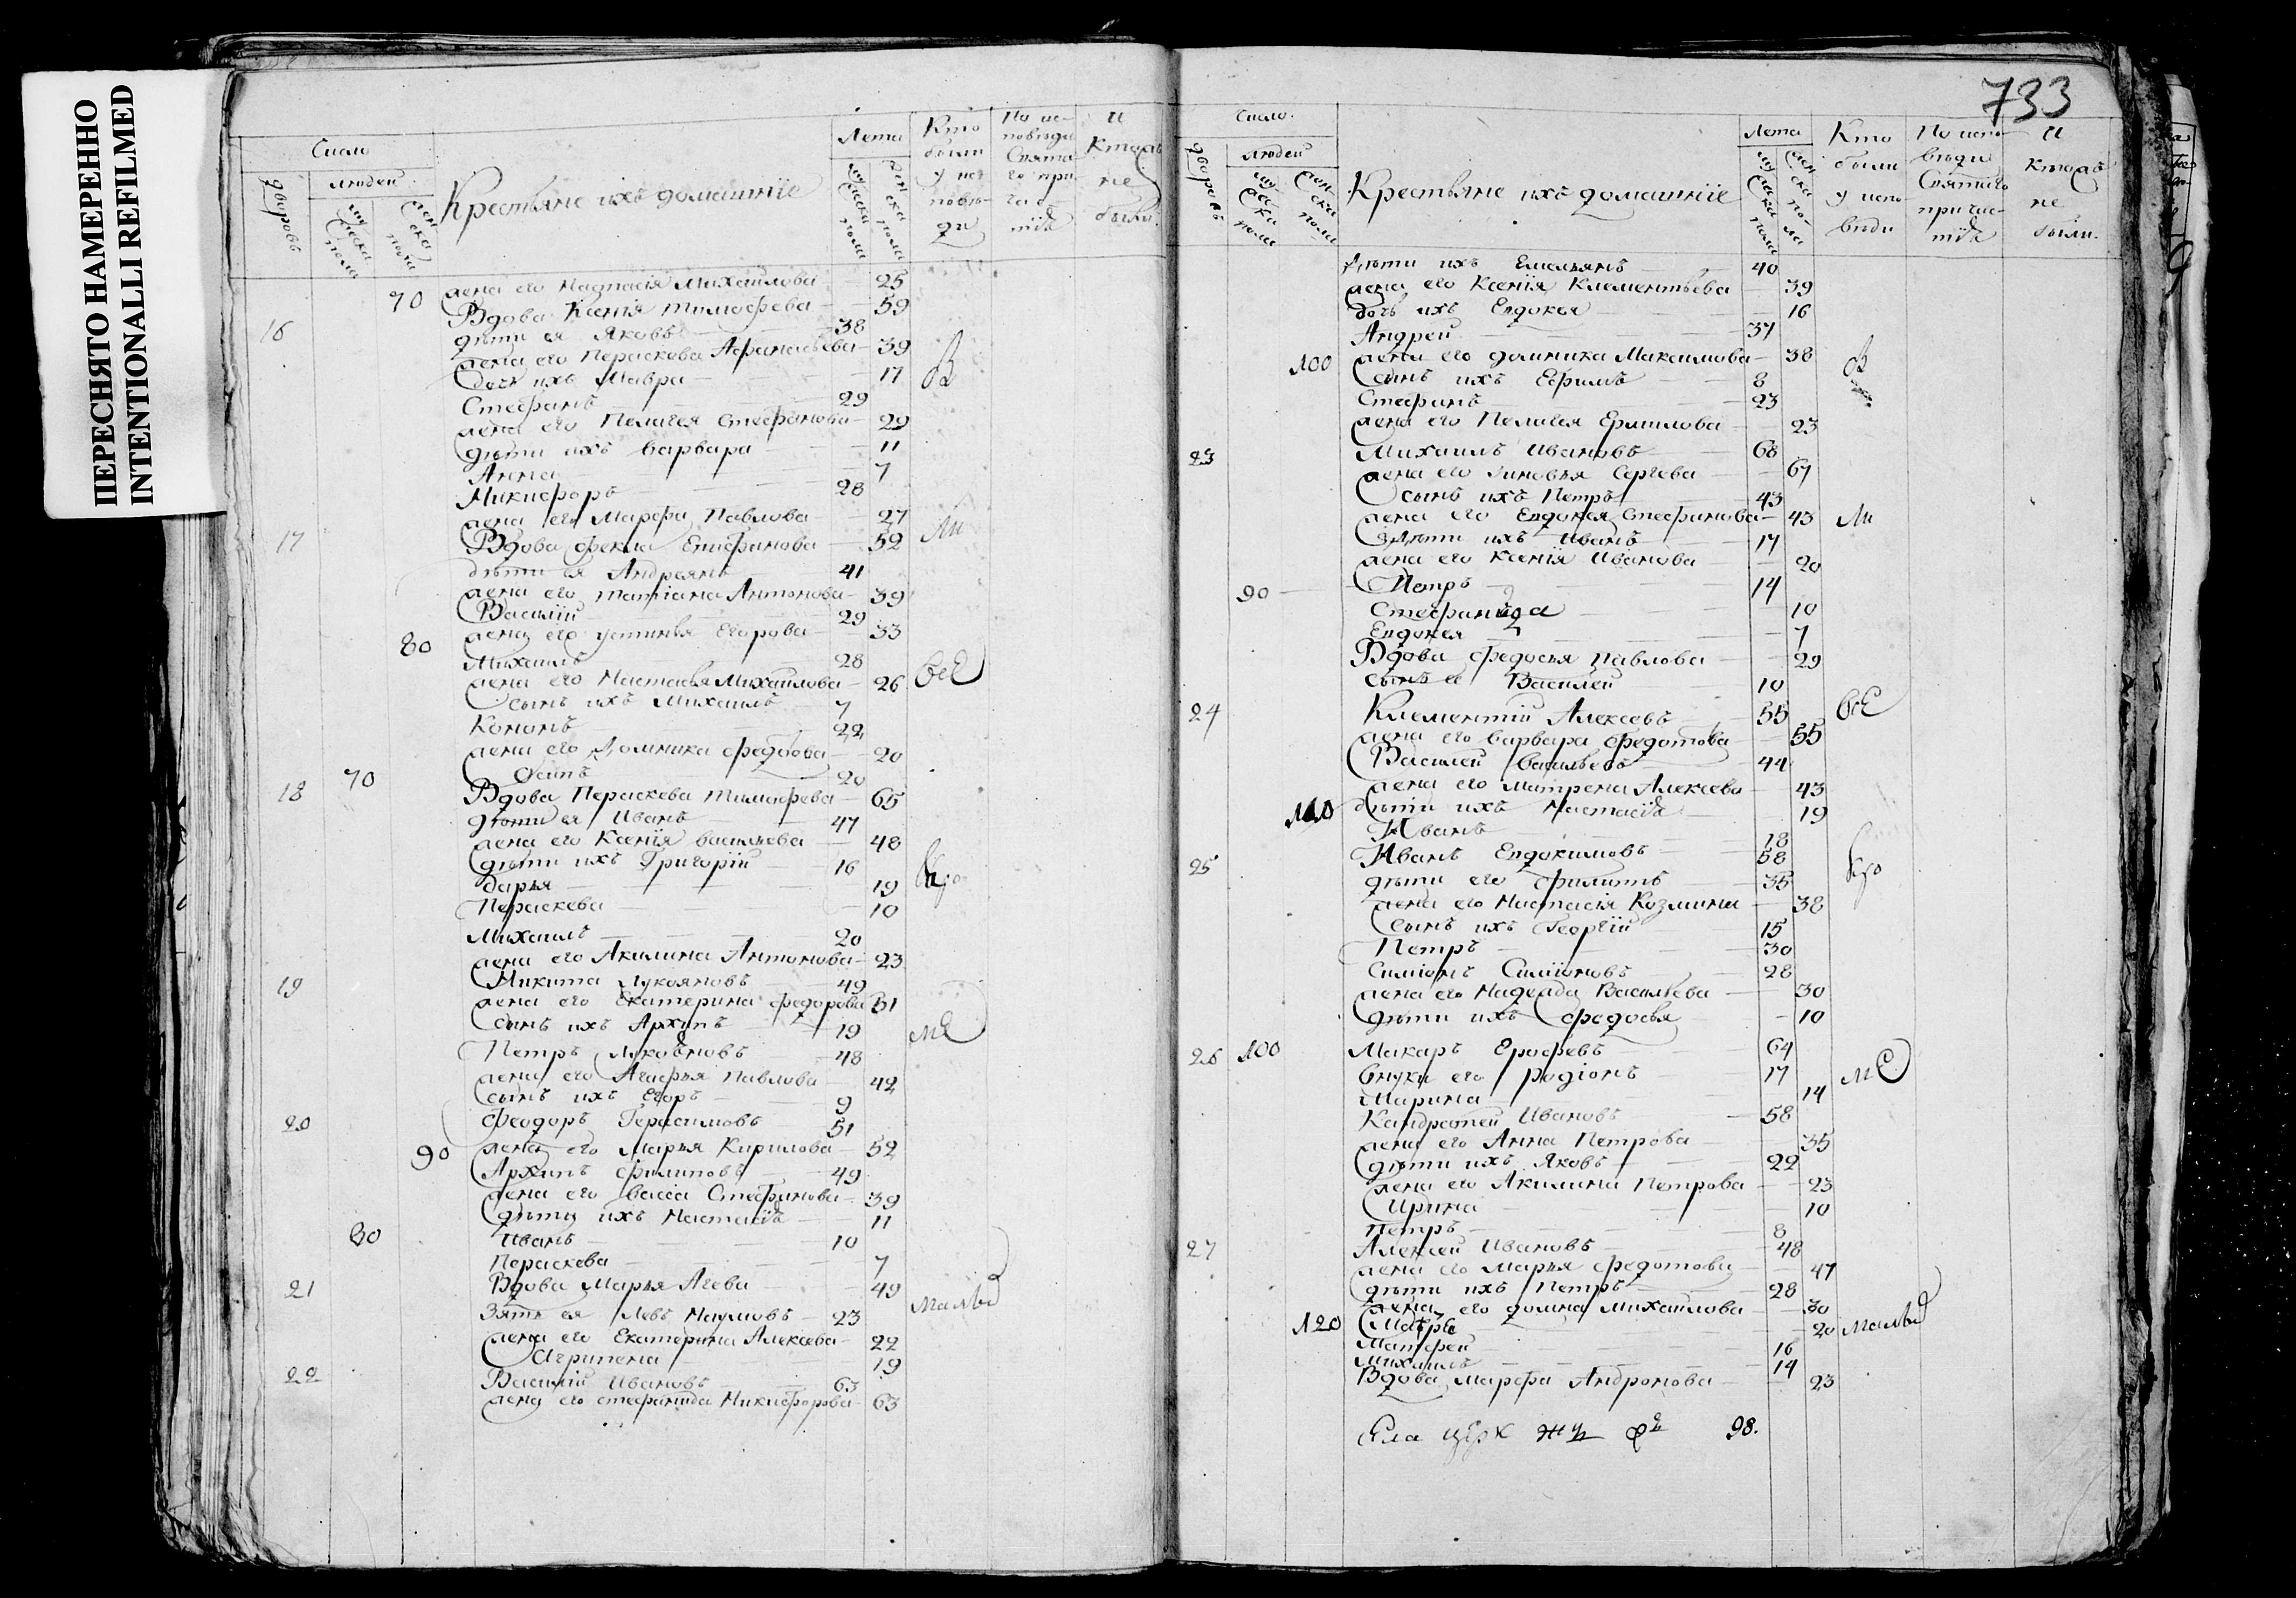 ПЕРЕСНЯТО НАМЕРЕННО
INTENTIONALLI REFILMED
Число
дворовъ
людей
мужеска пола
женска пола
Крестьяне ихъ домашнїе
Лета
мужеска пола
женска пола
Кто были у исповѣди
По исповѣди Святаго причастїѧ
И кто жъ не были
70 жена его Настасія Михаилова 25
16 Вдова Ксенія Тимофеева 59
дѣти ея Яковъ 38
жена его Пераскова Афанасьева 39
дочь ихъ Мавра 17
В
Стефанъ 29
жена его Пелагея Стефанова 29
дѣти ихъ Варвара 11
Анна 7
Микифоръ 28
жена его Марфа Павлова 27
17 Вдова Фекла Епифанова 52
ли
дѣти ея Андреянъ 41
жена его Татіана Антонова 39
Василїй 29
80 жена его Устинья Егорова 33
Михаилъ 28
жена его Настасья Михаилова 26
все
сынъ ихъ Михаилъ 7
Кононъ 22
жена его Домника Федорова 20
70 Осипъ 20
18 Вдова Пераскева Тимофеева 65
дѣти ея Иванъ 47
жена его Ксенїя Васильева 48
дѣти ихъ Григорїй 16
Дарья 19
Пераскева 10
Михаилъ 20
жена его Акилина Антонова 23
19 Никита Лукояновъ 49
жена его Екатерина Федорова 51
сынъ ихъ Архипъ 19
ме
Петръ Лукояновъ 48
жена его Агафья Павлова 42
сынъ ихъ Егоръ 9
20 Феодоръ Герасимовъ 51
90 жена его Марья Кирилова 52
Архипъ Филиповъ 49
жена его Васса Стефанова 39
дѣти ихъ Настасїѧ 11
80 Иванъ 10
Пераскева 7
21 Вдова Марья Агева 49
Зять ея Левъ Наумовъ 23
жена его Екатерина Алексева 22
Агрипена 19
22 Василїй Ивановъ 63
жена его Стефанида Никифорова 63
733
Число.
дворовъ
людей
мужеска пола
женска пола
Крестьяне ихъ домашнїе
Лета
мужеска пола
женска пола
Кто были у исповѣди
По исповѣди Святаго причастїѧ
И кто жъ не были.
Дѣти ихъ Емельянъ 40
жена его Ксенїя Клементьева 39
дочь ихъ Евдокея 16
Андрей 37
100 жена его Домника Максимова 38
В
сынъ ихъ Ефимъ 8
Стефанъ 23
жена его Пелагея Ермилова 23
23 Михаилъ Ивановъ 68
жена его Зиновья Сергева 67
сынъ ихъ Петръ 43
жена его Евдокея Стефанова 43
ли
дѣти ихъ Иванъ 17
жена его Ксенїя Иванова 20
90 Петръ 14
Стефанида 10
Евдокея 7
Вдова Федосья Павлова 29
сынъ ее Василей 10
24 Клементїй Алексевъ 55
все
жена его Варвара Федотова 55
Василей Васильевъ 44
жена его Матрена Алексева 43
110 дѣти ихъ Настасїѧ 19
Иванъ 18
25 Иванъ Евдокимовъ 58
дѣти его Филипъ 35
жена его Настасїя Козмина 38
сынъ ихъ Георгїй 15
Петръ 30
Симіонъ Симіоновъ 28
жена его Надежда Васильева 30
дѣти ихъ Федосья 10
26 100 Макаръ Ерофевъ 64
внуки его Родіонъ 17
ме
Марина 14
Кандратей Ивановъ 58
жена его Анна Петрова 35
дѣти ихъ Яковъ 22
жена его Акилина Петрова 23
Ирина 10
Петръ 8
27 Алексей Ивановъ 48
жена его Марья Федотова 47
дѣти ихъ Петръ 28
жена его Домна Михаилова 30
120 20
Матфей 16
Михаилъ 14
Вдова Марфа Андронова 23
98.